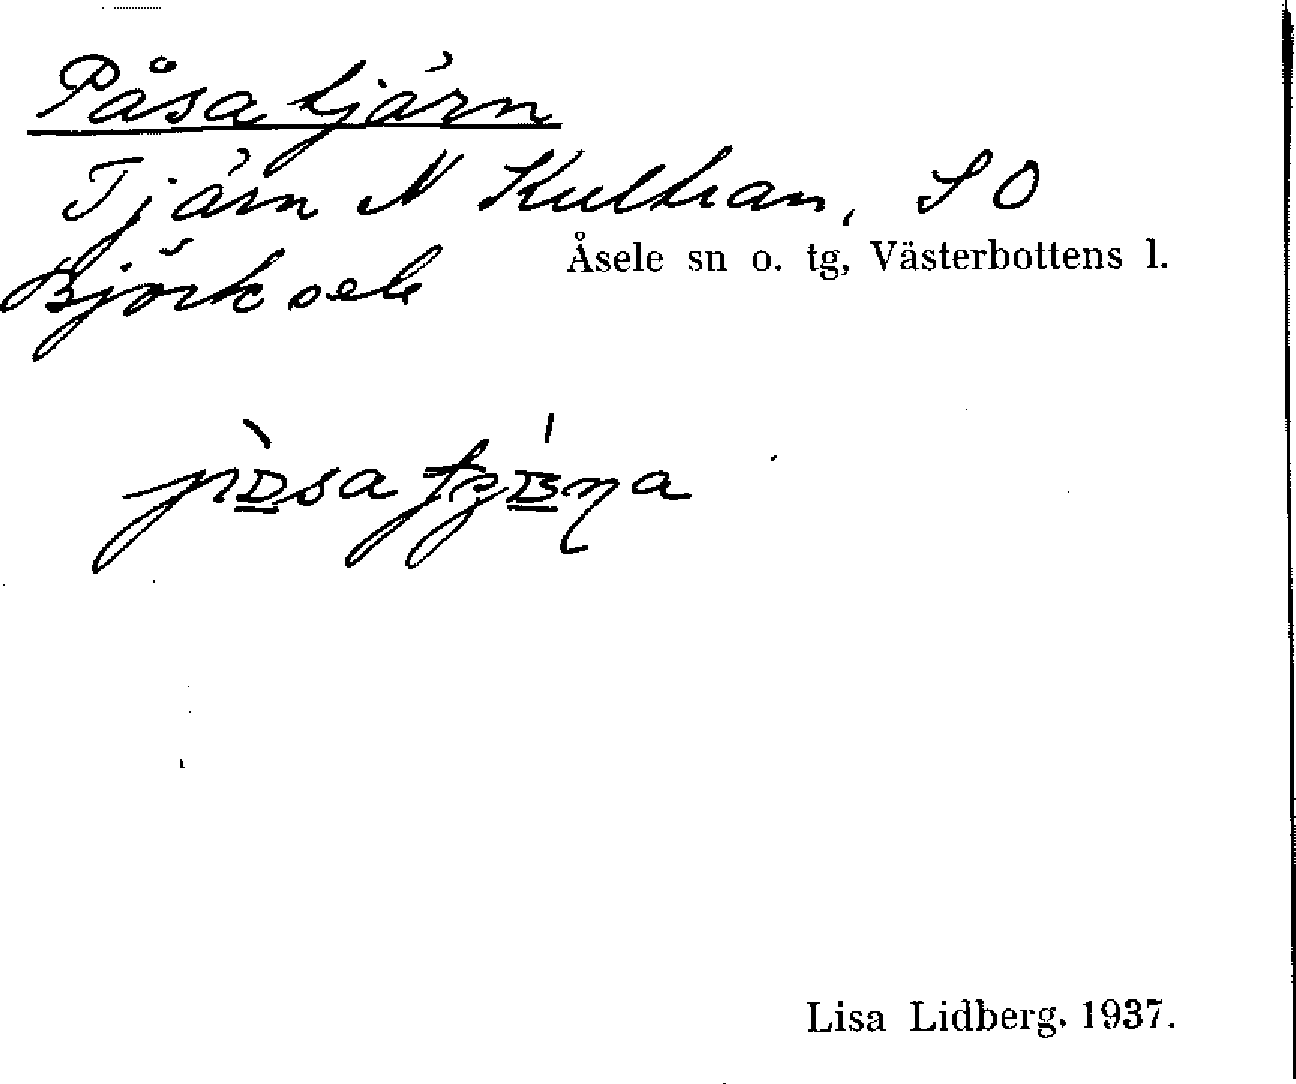 Påsatjärn
Tjärn N Kultran, S O
Björksele
Åsele sn o. tg, Västerbottens l.
Lisa Lidberg. 1937.